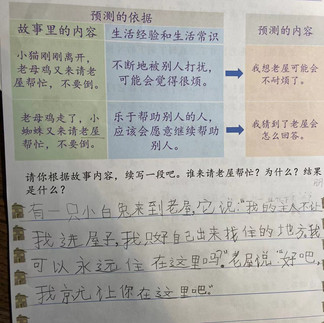 预测的依据
预测的内容
故事里的内容
生活经验和生活常识
小猫刚刚离开，
老母鸡又来请老
屋帮忙，不要倒。
不断地被别人打扰，
可能会觉得很烦。
我想老屋可能会
不耐烦了。
老母鸡走了，小
蜘蛛又来请老屋
帮忙，不要倒。
乐于帮助别人的人，
应该会愿意继续帮助
别人。
我猜到了老屋会
怎么回答。
请你根据故事内容，续写一段吧。谁来请老屋帮忙？为什么？结果
是什么？
有一只小白兔来到老屋,它说:"我的主人不让
我进屋子,我只好自己出来找住的地方,我
可以永远住在这里吗?"老屋说:"好吧,
我就让你在这里吧."